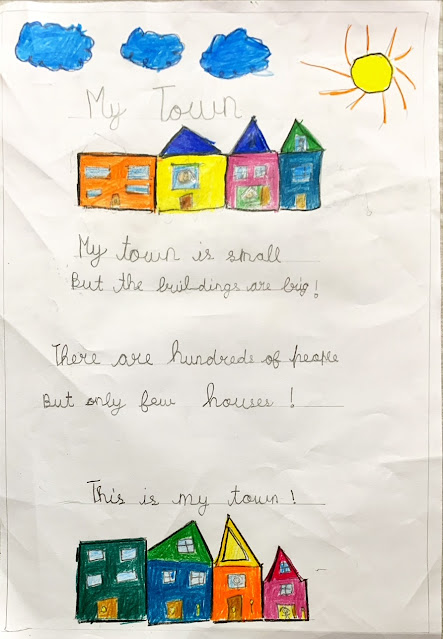 My Town
My town is small
But the buildings are big!
There are hundreds of people
But only few houses!
This is my town!